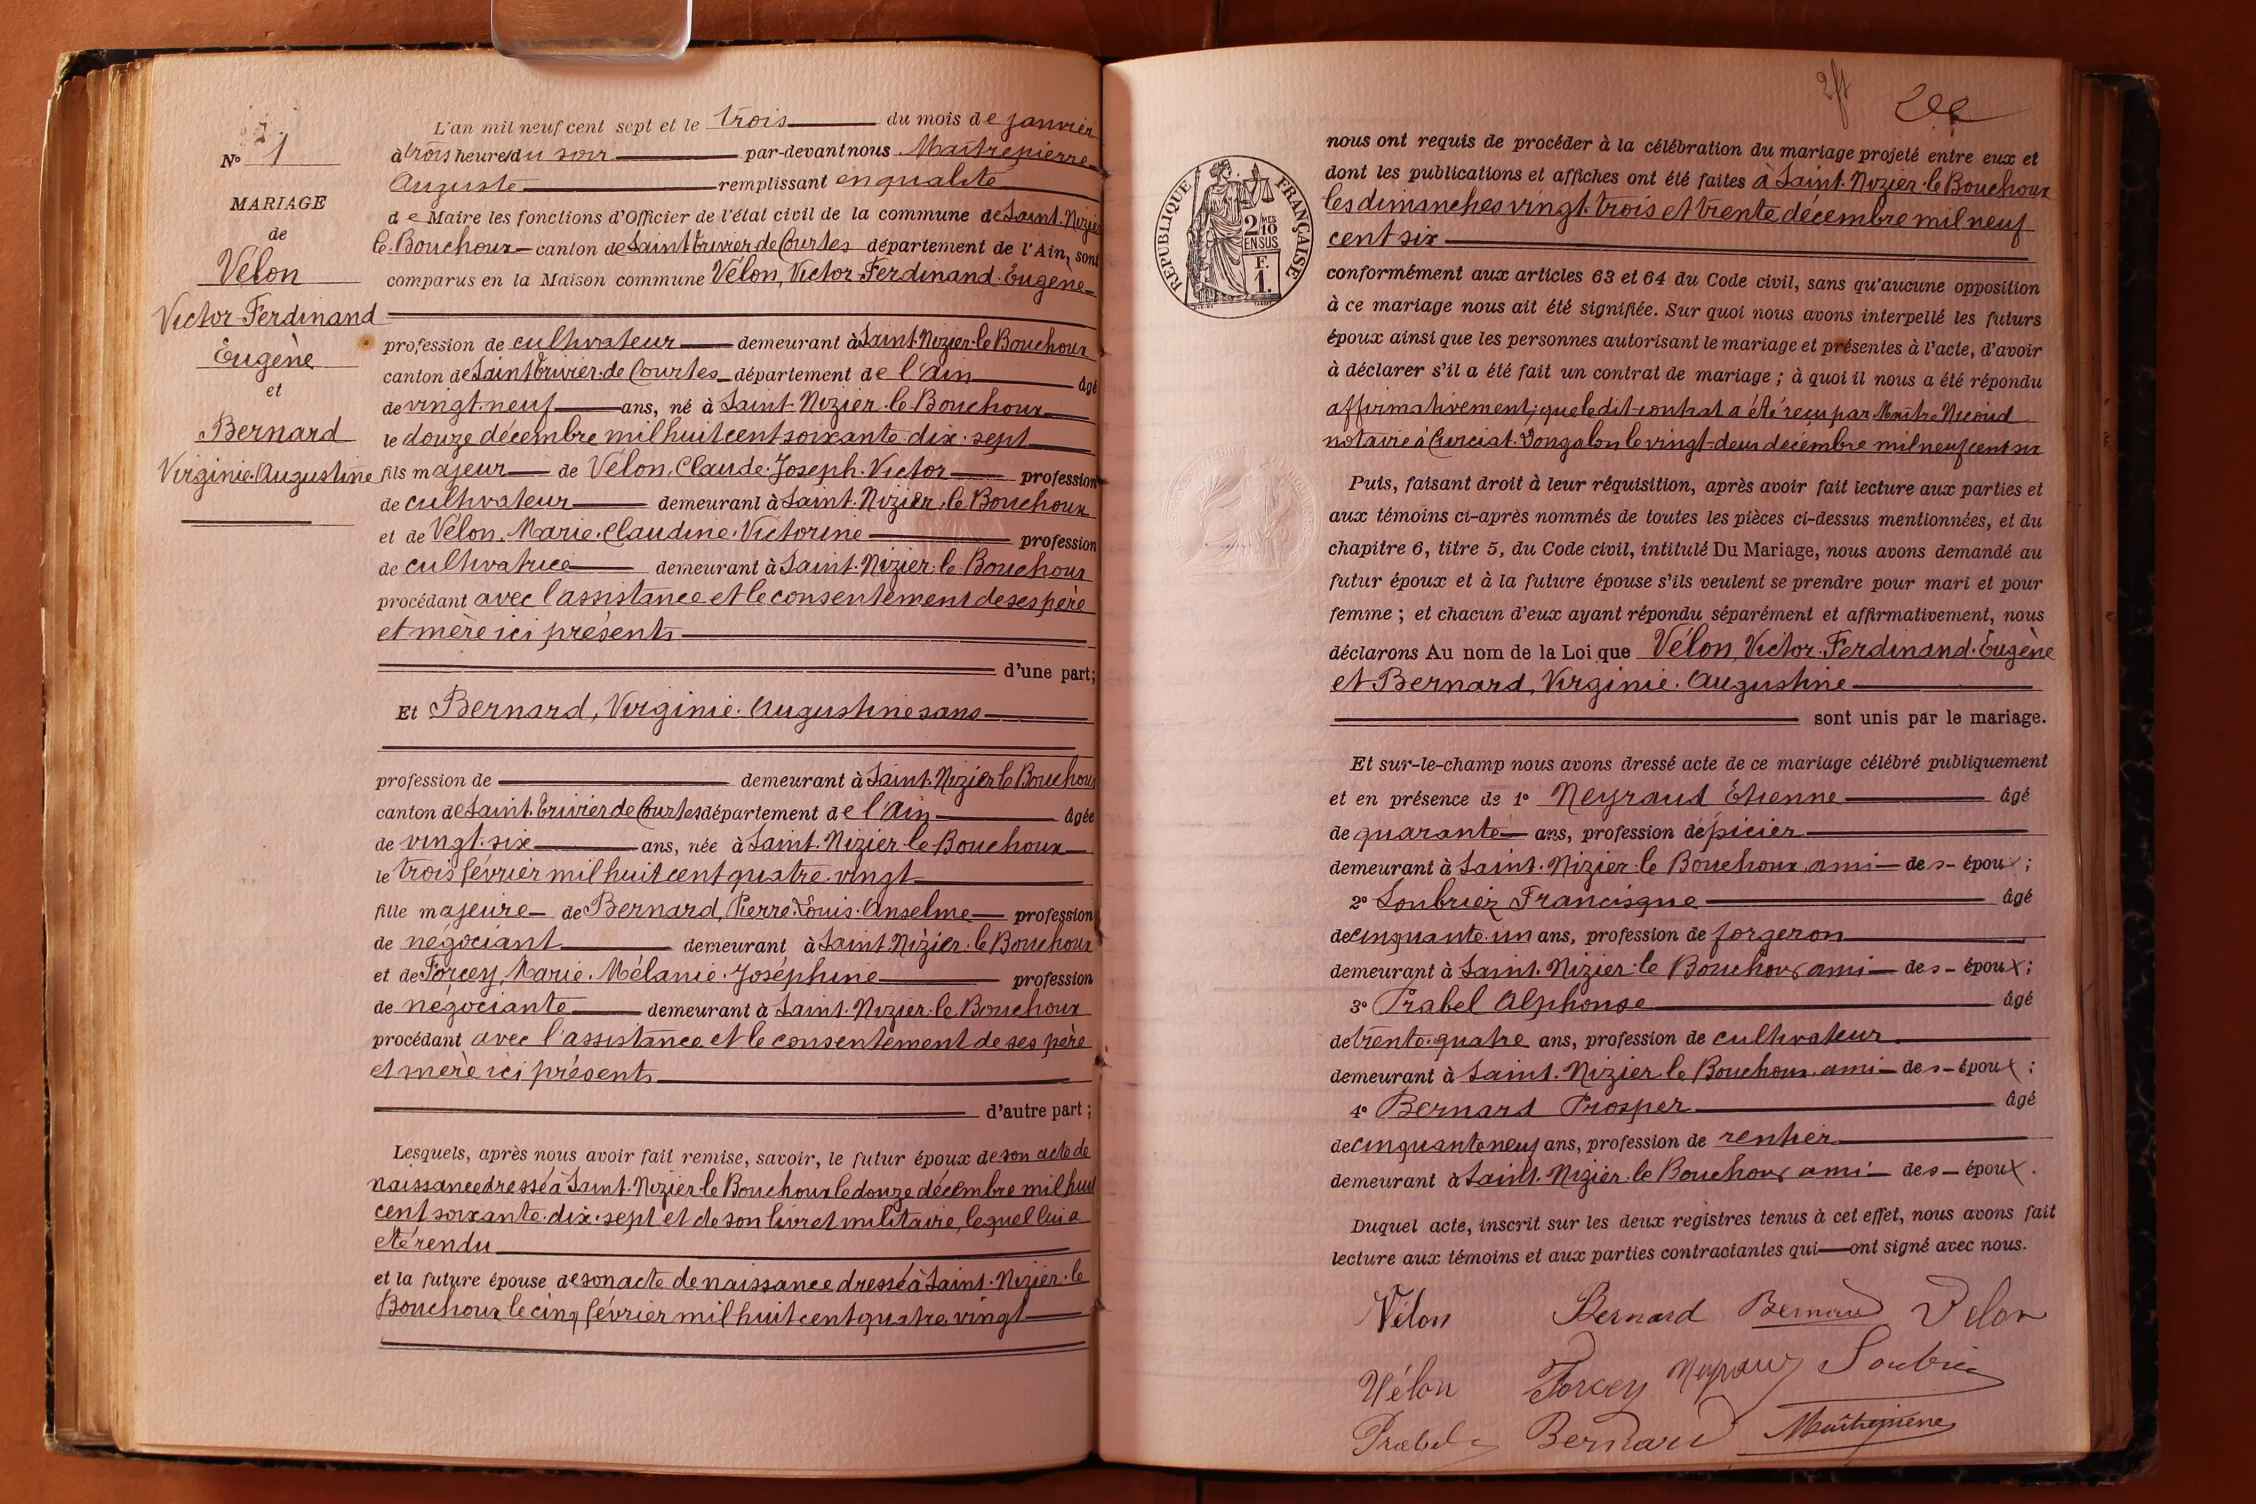 N° 1
MARIAGE
de
Vélon
Victor Ferdinand
Eugène
et
Bernard
Virginie Augustine
L'an mil neuf cent sept et le trois du mois de janvier
à trois heures du soir par-devant nous Maîtrepierre
Auguste remplissant en qualité
de Maire les fonctions d'Officier de l'état civil de la commune de Saint-Nizier
le-Bouchoux canton de Saint Trivier de Courtes département de l'Ain, sont
comparus en la Maison commune Vélon, Victor Ferdinand Eugène
profession de cultivateur demeurant à Saint Nizier le Bouchoux
canton de Saint Trivier de Courtes département de l'Ain âgé
de vingt-neuf ans, né à Saint-Nizier-le-Bouchoux
le douze décembre mil huit cent soixante-dix-sept
fils majeur de Vélon, Claude Joseph Victor profession
de cultivateur demeurant à Saint-Nizier-le-Bouchoux
et de Vélon, Marie Claudine Victorine profession
de cultivatrice demeurant à Saint-Nizier-le-Bouchoux
procédant avec l'assistance et le consentement de ses père
et mère ici présents
d'une part;
Et Bernard, Virginie Augustine sans
profession de demeurant à Saint-Nizier le Bouchoux
canton de Saint Trivier de Courtes département de l'Ain âgée
de vingt-six ans, née à Saint-Nizier-le-Bouchoux
le trois février mil huit cent quatre-vingt
fille majeure de Bernard, Pierre Louis Anselme profession
de négociant demeurant à Saint Nizier-le-Bouchoux
et de Forcey, Marie Mélanie Joséphine profession
de négociante demeurant à Saint-Nizier-le-Bouchoux
procédant avec l'assistance et le consentement de ses père
et mère ici présents
d'autre part;
Lesquels, après nous avoir fait remise, savoir, le futur époux de son acte de
naissance dressé à Saint-Nizier-le-Bouchoux le douze décembre mil huit
cent soixante-dix-sept et de son livret militaire, lequel lui a
été rendu
et la future épouse de son acte de naissance dressé à Saint-Nizier-le
Bouchoux le cinq février mil huit cent quatre vingt
RÉPUBLIQUE FRANÇAISE
2/10
EN SUS
F.
1.
nous ont requis de procéder à la célébration du mariage projeté entre eux et
dont les publications et affiches ont été faites à Saint-Nizier-le-Bouchoux
les dimanches vingt-trois et trente décembre mil neuf
cent six
conformément aux articles 63 et 64 du Code civil, sans qu'aucune opposition
à ce mariage nous ait été signifiée. Sur quoi nous avons interpellé les futurs
époux ainsi que les personnes autorisant le mariage et présentes à l'acte, d'avoir
à déclarer s'il a été fait un contrat de mariage; à quoi il nous a été répondu
affirmativement; que le dit contrat a été reçu par Maître Nicoud
notaire à Curciat-Dongalon le vingt-deux décembre mil neuf cent six
Puis, faisant droit à leur réquisition, après avoir fait lecture aux parties et
aux témoins ci-après nommés de toutes les pièces ci-dessus mentionnées, et du
chapitre 6, titre 5, du Code civil, intitulé Du Mariage, nous avons demandé au
futur époux et à la future épouse s'ils veulent se prendre pour mari et pour
femme; et chacun d'eux ayant répondu séparément et affirmativement, nous
déclarons Au nom de la Loi que Vélon, Victor Ferdinand Eugène
et Bernard, Virginie Augustine
sont unis par le mariage.
Et sur-le-champ nous avons dressé acte de ce mariage célébré publiquement
et en présence de 1° Neyraud Etienne âgé
de quarante ans, profession d'épicier
demeurant à Saint-Nizier-le Bouchoux, ami des époux;
2° Soubriez Francisque âgé
de cinquante-un ans, profession de forgeron
demeurant à Saint-Nizier-le Bouchoux ami des époux;
3° Prabel Alphonse âgé
de trente-quatre ans, profession de cultivateur
demeurant à Saint-Nizier le Bouchoux, ami des époux;
4° Bernard Prosper âgé
de cinquante neuf ans, profession de rentier
demeurant à Saint-Nizier-le Bouchoux ami des époux.
Duquel acte, inscrit sur les deux registres tenus à cet effet, nous avons fait
lecture aux témoins et aux parties contractantes qui ont signé avec nous.
Vélon Bernard Bernard Velon
Vélon Forcey Neyraud Soubriez
Prabel Bernard Maîtrepierre